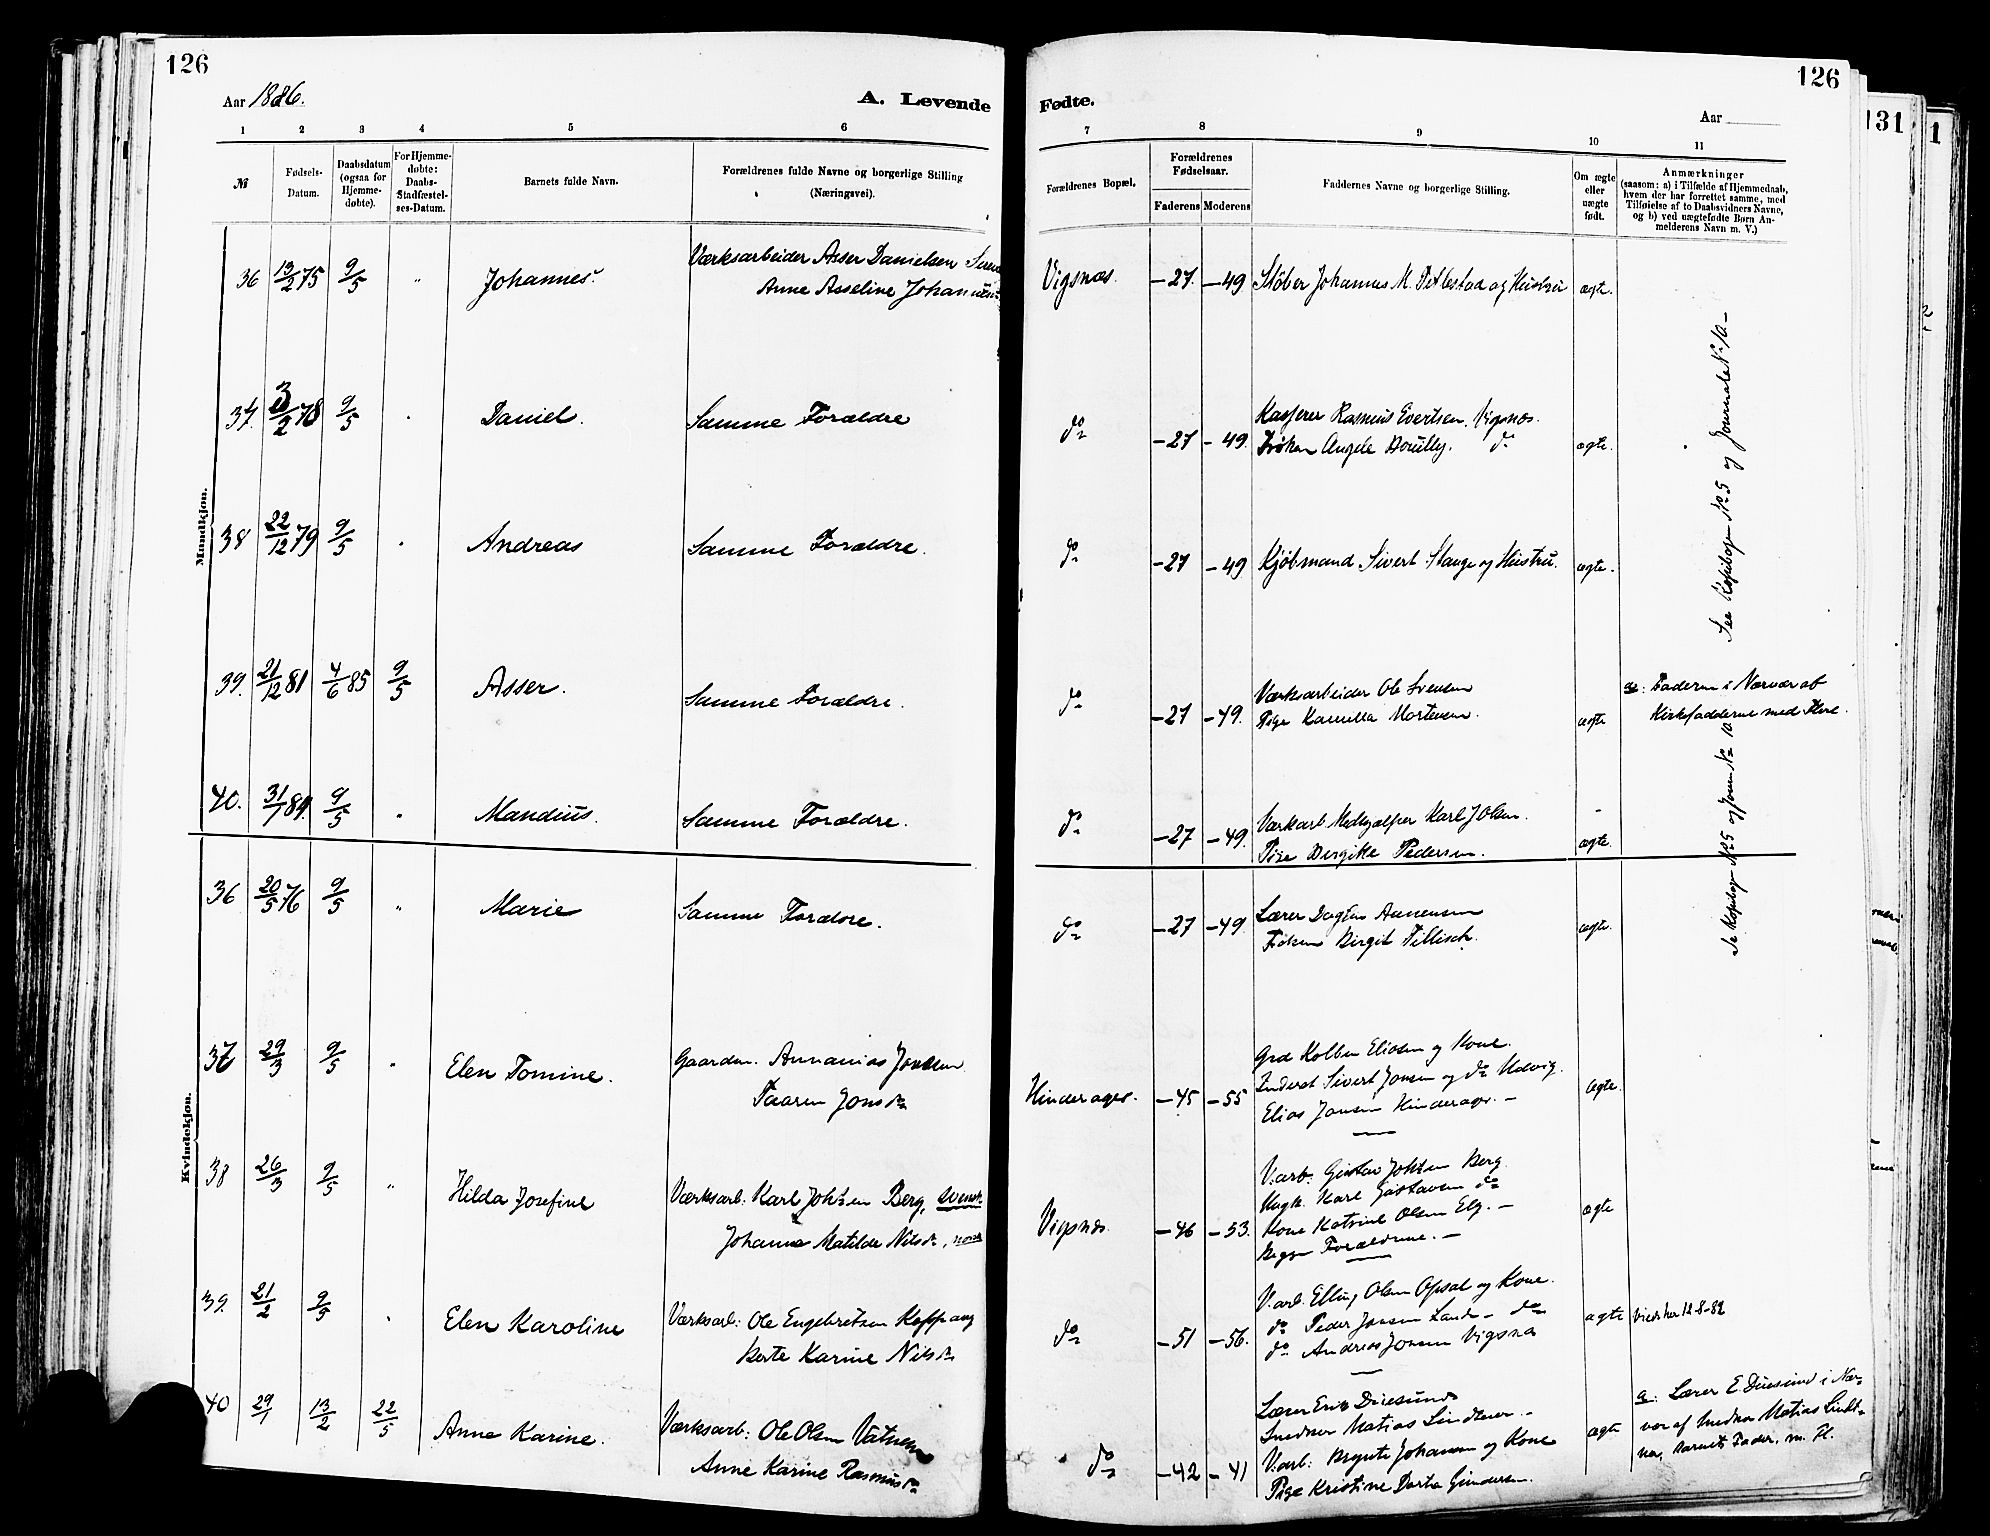 126
Aar 1886.
A. Levende
1 2 3 4 5 6
№
Fødsels-Datum.
Daabsdatum (ogsaa for Hjemmedøbte).
For Hjemmedøbte: Daabs-Stadfæstelses-Datum.
Barnets fulde Navn.
Forældrenes fulde Navne og borgerlige Stilling
(Næringsvei).
Mandkjøn.
36 13/2 75 9/5 " Johannes. Værksarbeider Asser Danielsen
Anne Asseline
37. 3/2 78 9/5 Daniel. Samme Forældre
38 22/12 79 9/5 Andreas Samme Forældre.
39. 21/12 81 4/6 85 9/5 Asser. Samme Forældre.
40. 31/1 84. 9/5 " Mandius. Samme Forældre.
Kvindekjøn.
36 20/5 76 9/5 " Marie Samme Forældre.
37 29/3 9/5 " Elen Tomine. Gaardm. Annanias
Taaren
38 26/3 9/5 " Hilda Josefine Værksarb. Karl Berg, svensk
Johanna Matilde Nilsdr, norsk
39. 21/2 9/5 " Elen Karoline Værksarb: Ole Engebretsen Koppang
Berte Karine Nilsdr
40 29/1 13/2 22/5 Anne Karine. Værksarb: Ole Olsen
Anne Karine Rasmusdr
126
Fødte.
Aar
7 8 9 10 11
Forældrenes Bopæl.
Forældrenes Fødselsaar.
Faderens Moderens
Faddernes Navne og borgerlige Stilling.
Om ægte eller uægte født.
Anmærkninger
(saasom: a) i Tilfælde af Hjemmedaab,
hvem der har forrettet samme, med
Tilføielse af to Daabsvidners Navne,
og b) ved uægtefødte Børn Anmelderens Navn m. V.)
Vigsnæs. –27. –49 Støber Johannes M. og Hustru ægte.
do –27 –49. Kasserer Rasmus Evertsen. Vigsnæs.
Frøken Angele do ægte.
do –27 –49 Kjøbmand Sivert Stange og Hustru. ægte.
do –27 –49. Værksarbeider Ole Svensen
Pige Kamilla Mortensen. ægte
a: Faderen i Nærvær af
Kirkefadderne med Flere.
do –27 –49. Værkarb. Medhjælper Karl J Olsen.
Pige Pedersen. ægte.
do –27 –49. Lærer
Frøken Birgit Tillisch. ægte.
See Kopibogen No 5 og Journale No 10 –
Se Kopibog No 5 og Journ No 10
Hinderager. –45 –55 Grd Kolben Eliasen og Kone.
Sivert Jonsen og do
Elias Jonsen Hinderager. – ægte.
Vigsnæs. –46 –53. V.arb. Gustav Berg
Karl Gustavsen do
Kone Olsen –
Begge Forældrene. – ægte
do –51 –56. V.arb. Elling Olsen Opsal og Kone.
do Peder Jonsen – do
do Andreas Jonsen Vigsnæs ægte
viet her 12-8-82
do –42 –41 Lærer
Smedner Matias Lindtner. –
V.arb: Johansen og Kone
Pige Kristine Gundersen. ægte
a: Lærer E. i Nær-
vær af Matias Lindt-
ner, Barnets Fader, m. Fl.
131
1